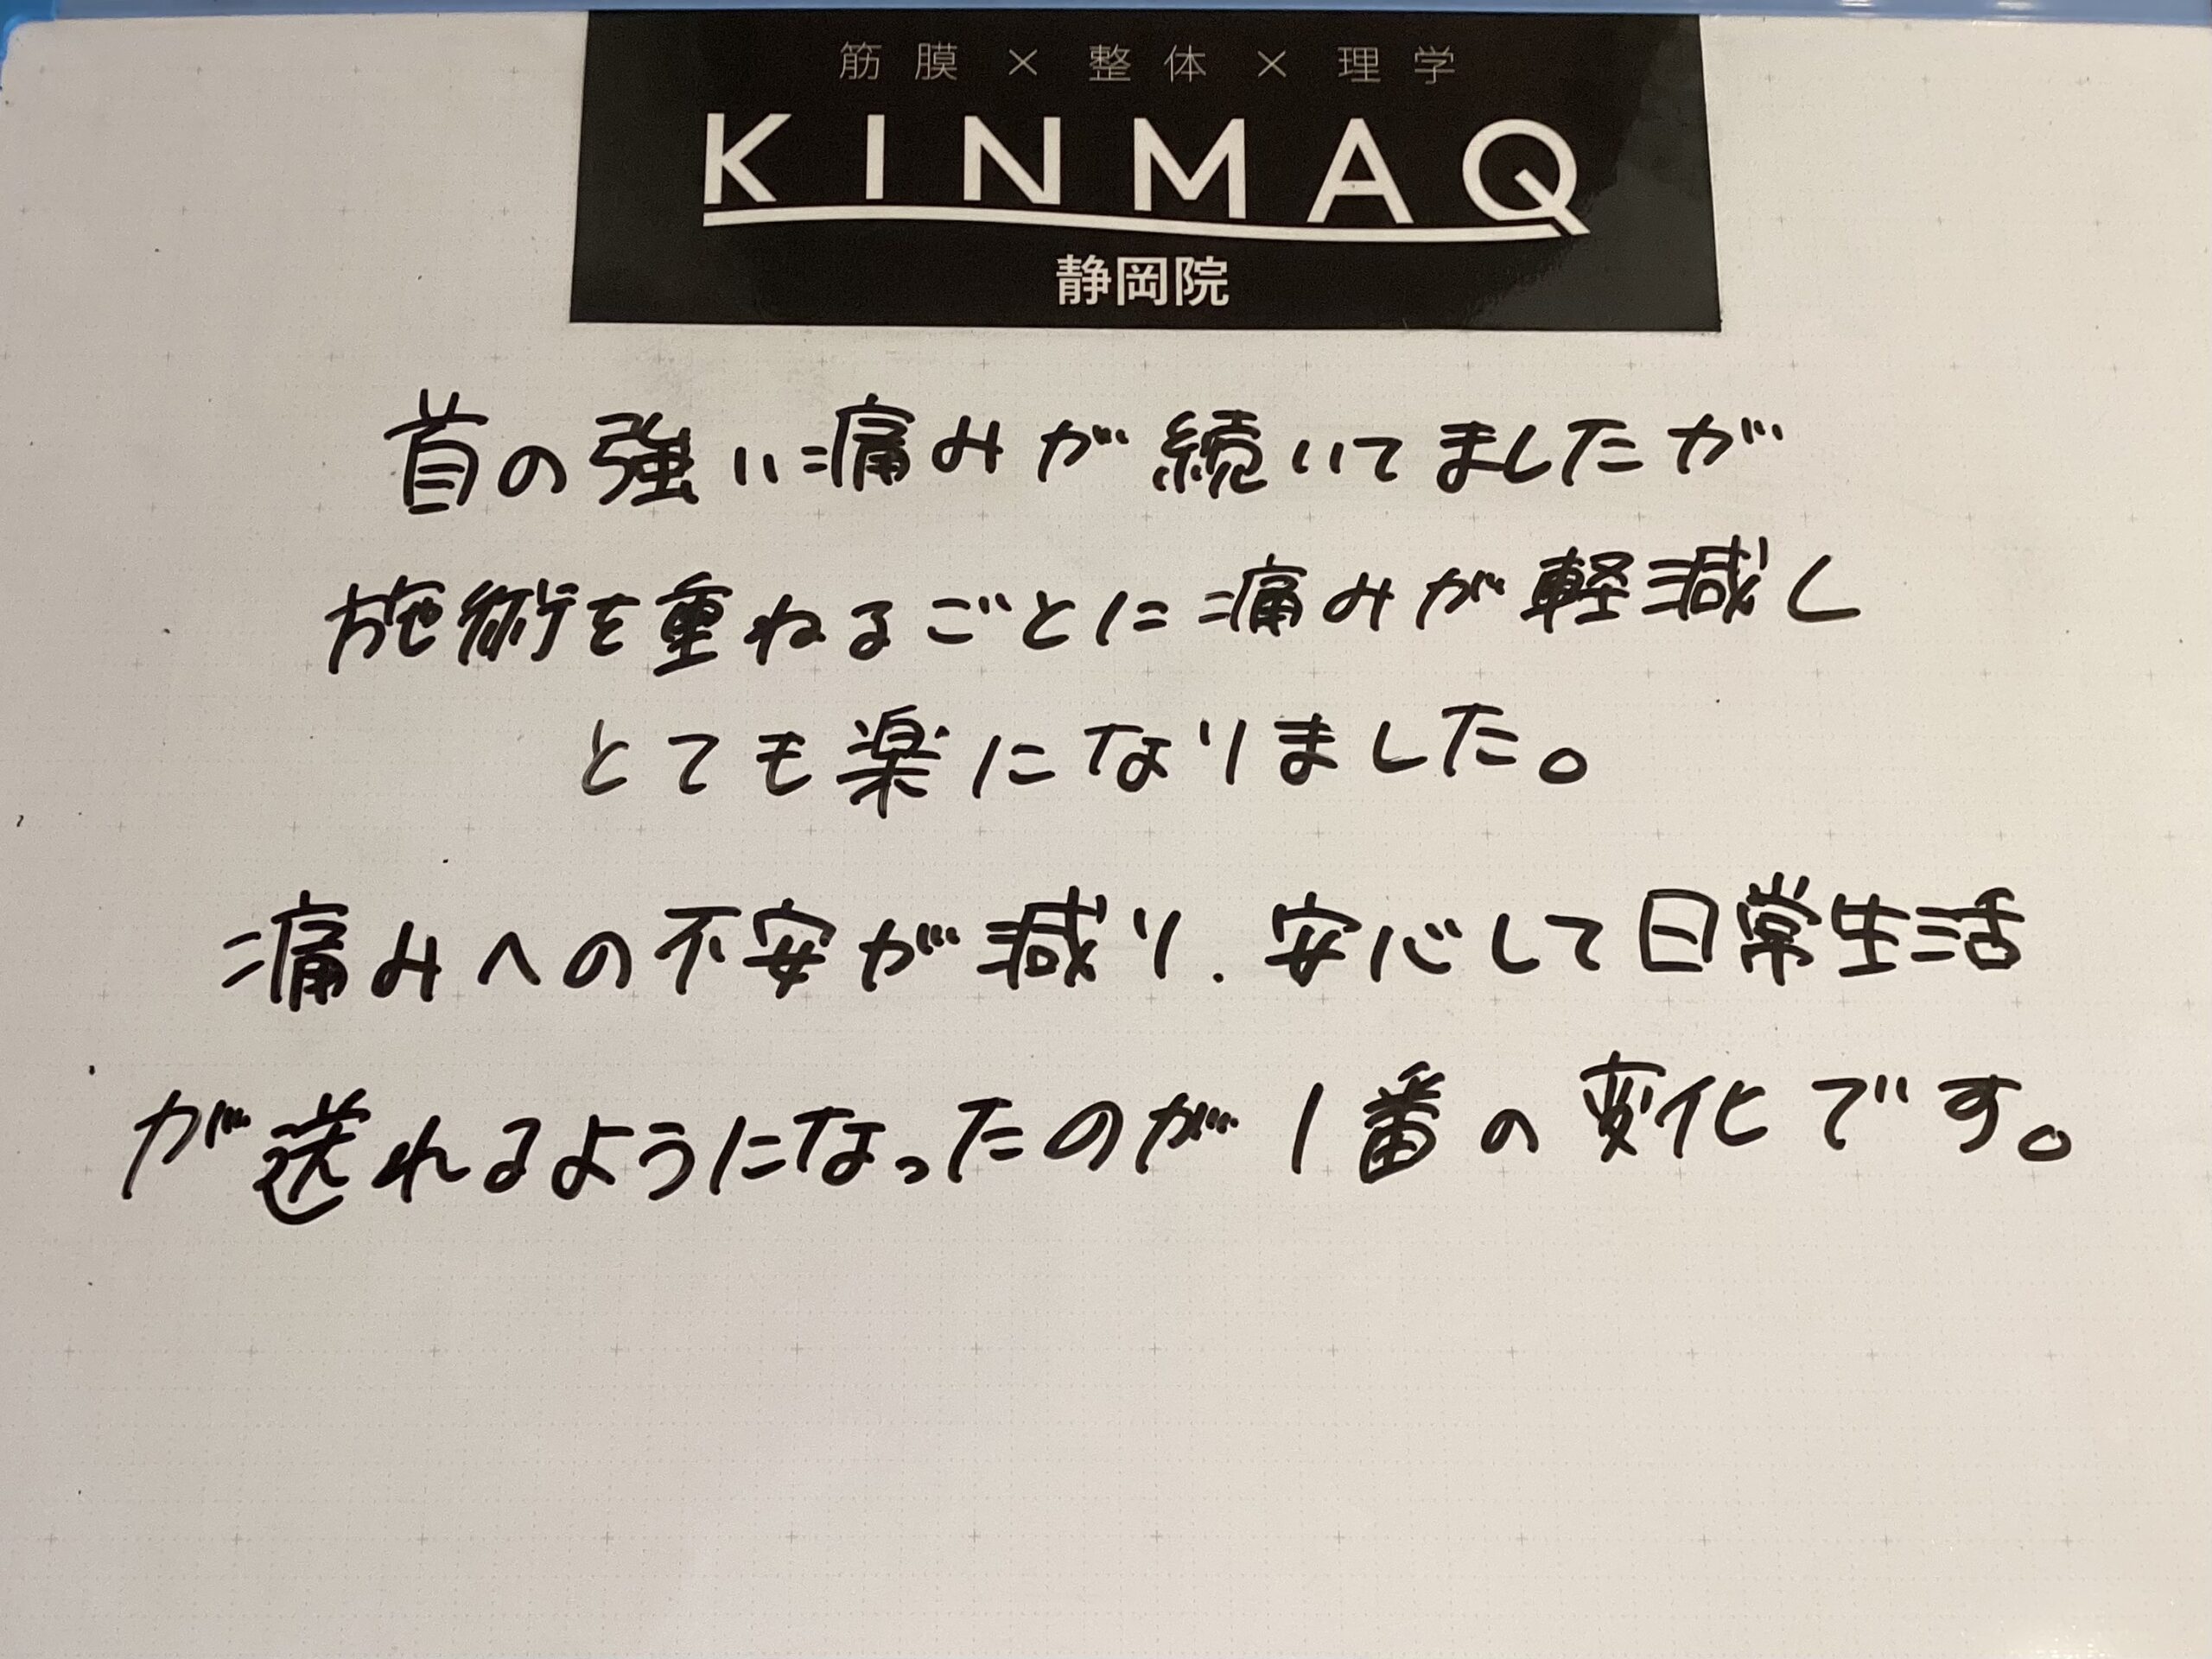 筋膜×整体×理学
KINMAQ
静岡院
首の強い痛みが続いてましたが
施術を重ねるごとに痛みが軽減し
とても楽になりました。
痛みへの不安が減り、安心して日常生活
が送れるようになったのが1番の変化です。